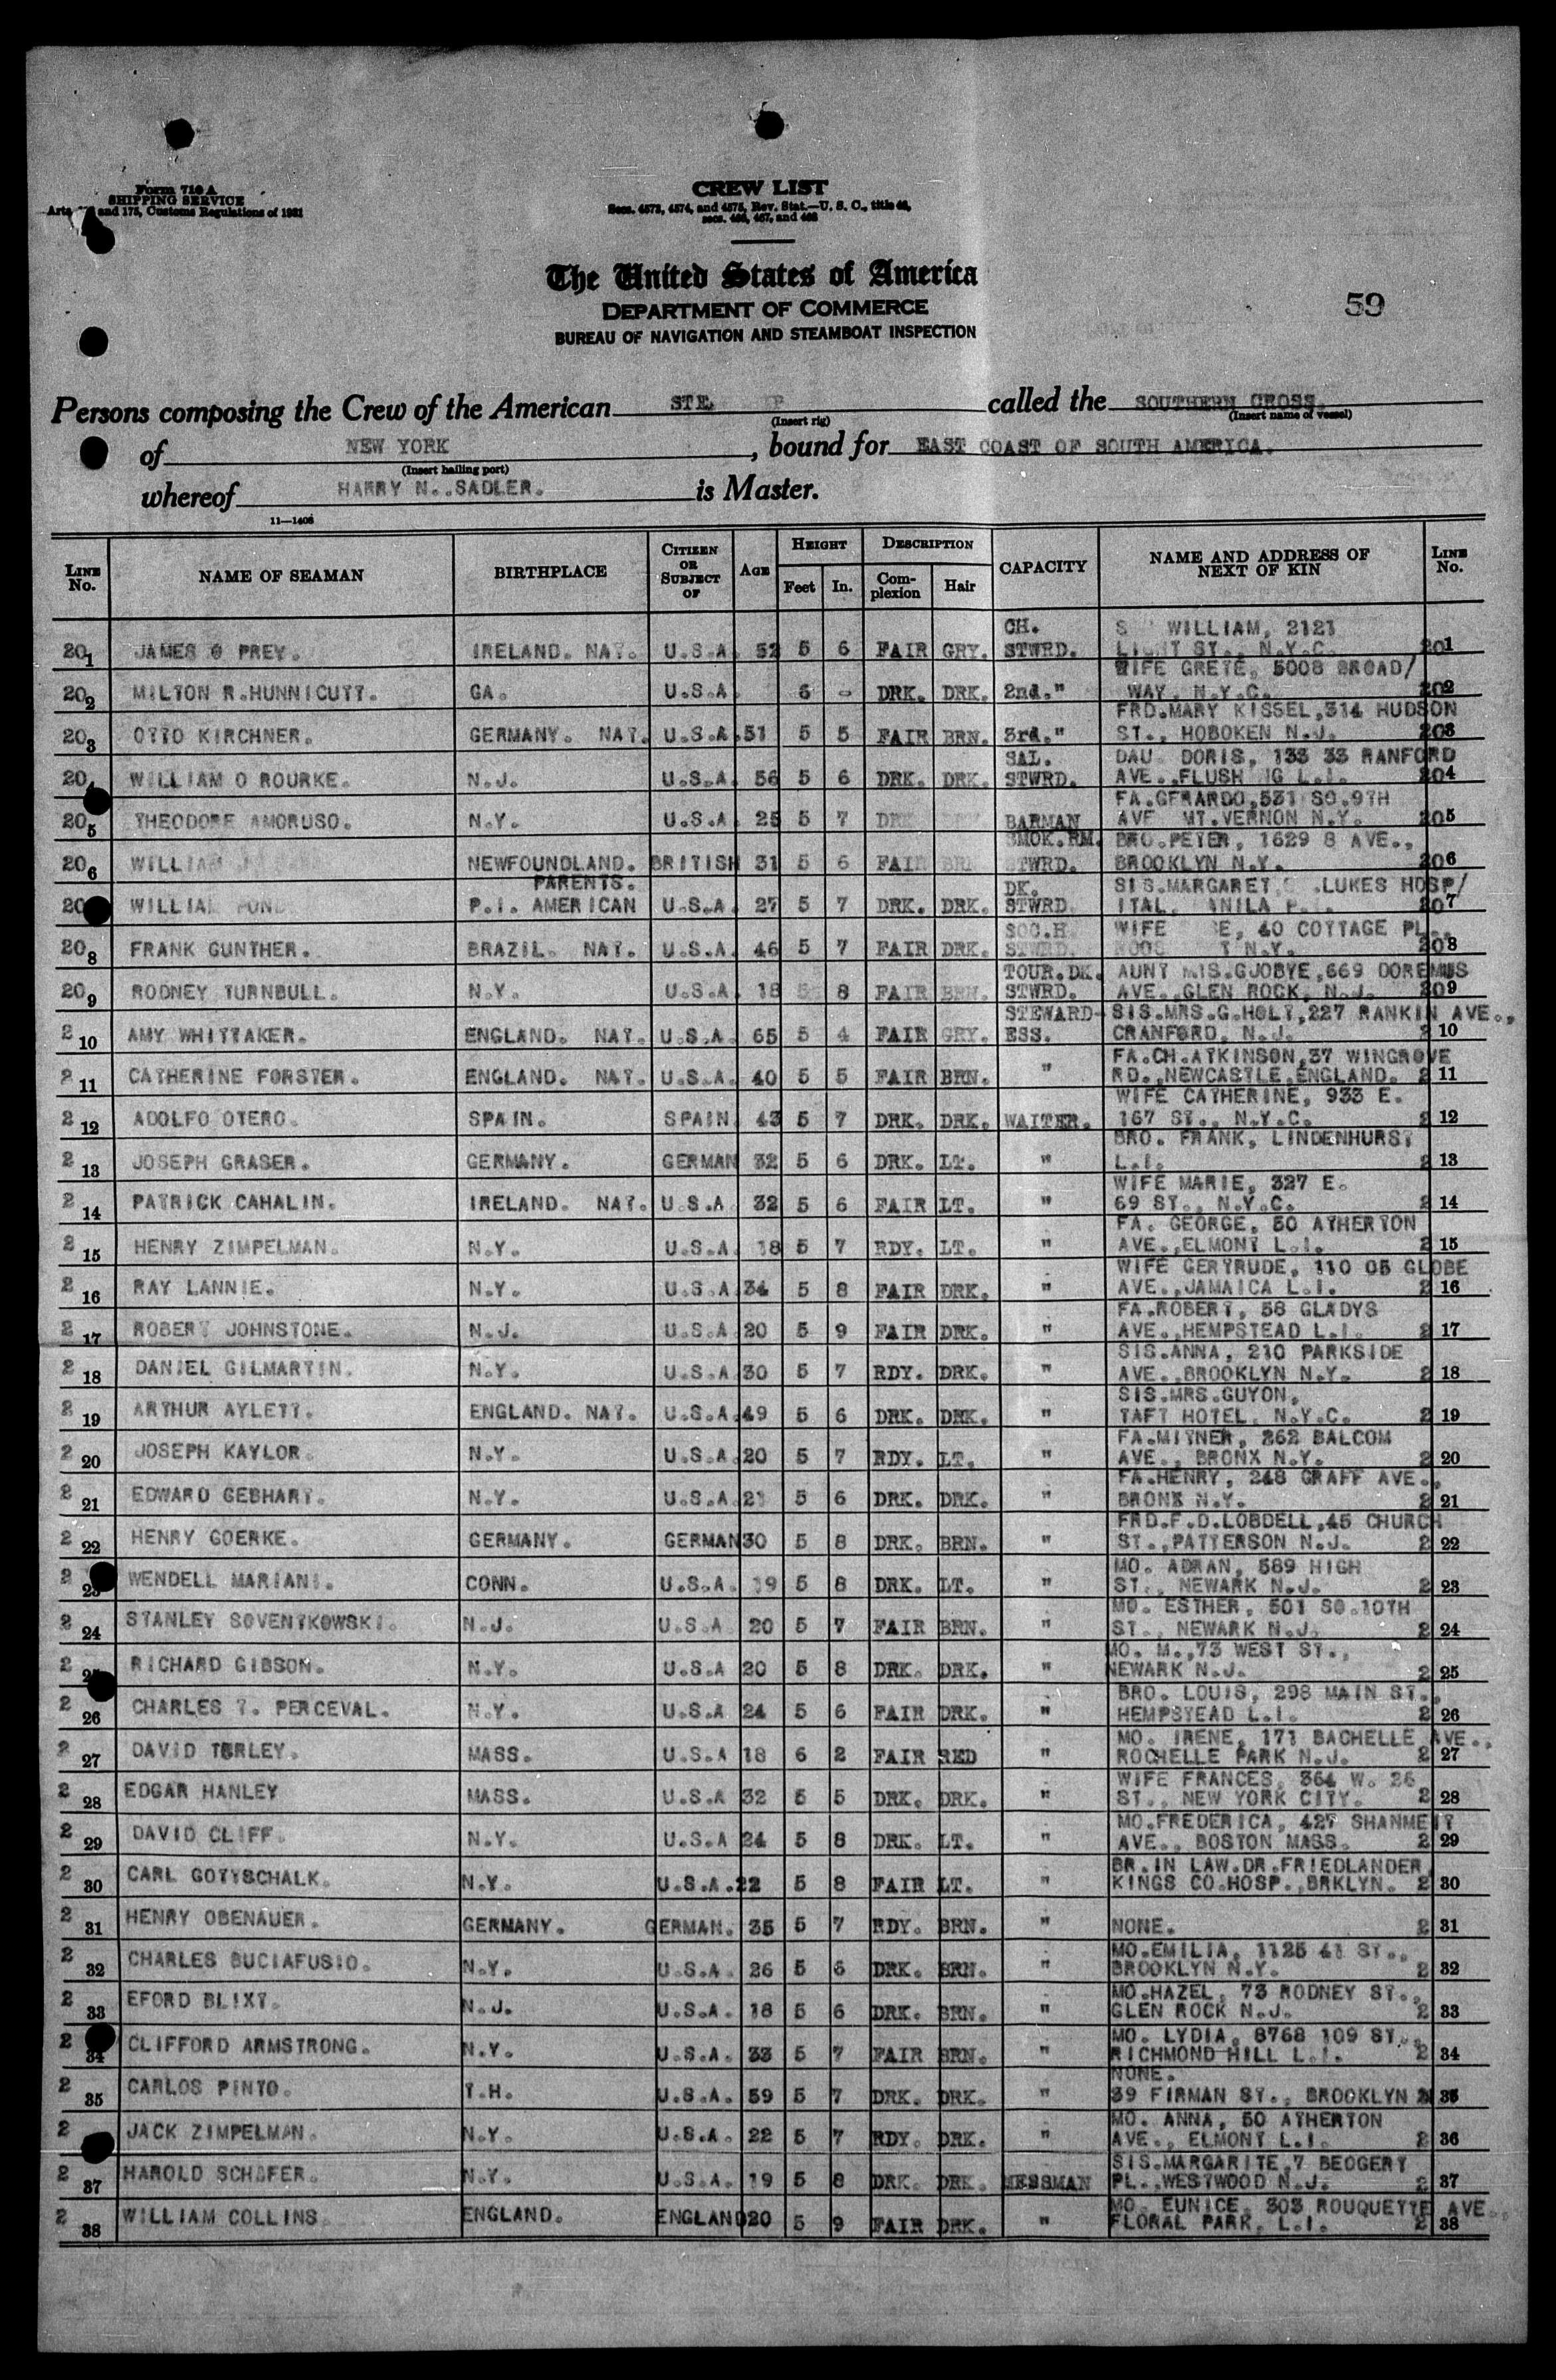 Form 710 A
SHIPPING SERVICE
and 175, Customs Regulations of 1931
CREW LIST
Secs. 4573, 4574, and 4575, Rev. Stat.—U. S. C., title 46,
secs. 466, 467, and 468
The United States of America
DEPARTMENT OF COMMERCE
BUREAU OF NAVIGATION AND STEAMBOAT INSPECTION
59
Persons composing the Crew of the American called the SOUTHERN CROSS.
(Insert rig) (Insert name of vessel)
of NEW YORK , bound for EAST COAST OF SOUTH AMERICA.
(Insert hailing port)
whereof HARRY N..SADLER. is Master.
11—1406
LINE No. NAME OF SEAMAN BIRTHPLACE CITIZEN OR SUBJECT OF AGE HEIGHT Feet In. DESCRIPTION Complexion Hair CAPACITY NAME AND ADDRESS OF NEXT OF KIN LINE No.
CH. WILLIAM, 2121
201 JAMES O PREY. IRELAND. NAT. U.S.A. 52 5 6 FAIR GRY. STWRD. ST., N.Y.C. 201
WIFE GRETE, 5008 BROAD/
202 MILTON R.HUNNICUTT. GA. U.S.A 6 - DRK. DRK. 2nd." WAY, N.Y.C. 202
FRD.MARY KISSEL,314 HUDSON
203 OTTO KIRCHNER. GERMANY. NAT. U.S.A.51 5 5 FAIR BRN. 3rd." ST., HOBOKEN N.J. 203
SAL. DAU. DORIS, 133 33 RANFORD
20 WILLIAM O ROURKE. N.J. U.S.A. 56 5 6 DRK. DRK. STWRD. AVE., L.I. 204
FA.GERARDO,531 SO.9TH
205 THEODORE AMORUSO. N.Y. U.S.A. 25 5 7 DRK BARMAN AVE MT.VERNON N.Y. 205
SMOK.RM. BRO.PETER, 1629 8 AVE.,
206 WILLIAM NEWFOUNDLAND. BRITISH 31 5 6 FAIR STWRD. BROOKLYN N.Y. 206
PARENTS. DK. SIS.MARGARET LUKES HOSP/
20 P.I. AMERICAN U.S.A. 27 5 7 DRK. DRK. STWRD. ITAL, 207
SOC.H. WIFE 40 COTTAGE PL.,
208 FRANK GUNTHER. BRAZIL. NAT. U.S.A. 46 5 7 FAIR DRK. STWRD. N.Y. 208
TOUR.DK. AUNT MIS.GOODYE,669 DOREMUS
209 RODNEY TURNBULL. N.Y. U.S.A. 18 5 8 FAIR BRN. STWRD. AVE.,GLEN ROCK, N.J. 209
STEWARD- SIS.MRS.G.HOLT,227 RANKIN AVE.,
2 10 AMY WHITTAKER. ENGLAND. NAT. U.S.A. 65 5 4 FAIR GRY. ESS. CRANFORD, N.J. 2 10
FA.CH.ATKINSON,37 WINGROVE
2 11 CATHERINE FORSTER. ENGLAND. NAT. U.S.A. 40 5 5 FAIR BRN. " RD.,NEWCASTLE,ENGLAND. 2 11
WIFE CATHERINE, 933 E.
2 12 ADOLFO OTERO. SPAIN. SPAIN 43 5 7 DRK. DRK. WAITER. 167 ST., N.Y.C. 2 12
BRO. FRANK, LINDENHURST
2 13 JOSEPH GRASER. GERMANY. GERMAN 32 5 6 DRK. LT. " L.I. 2 13
WIFE MARIE, 327 E.
2 14 PATRICK CAHALIN. IRELAND. NAT. U.S.A 32 5 6 FAIR LT. " 69 ST., N.Y.C. 2 14
FA. GEORGE, 50 ATHERTON
2 15 HENRY ZIMPELMAN. N.Y. U.S.A. 18 5 7 RDY. LT. " AVE.,ELMONT L.I. 2 15
WIFE GERTRUDE, 110 05 GLOBE
2 16 RAY LANNIE. N.Y. U.S.A.34 5 8 FAIR DRK. " AVE.,JAMAICA L.I. 2 16
FA.ROBERT, 58 GLADYS
2 17 ROBERT JOHNSTONE. N.J. U.S.A 20 5 9 FAIR DRK. " AVE.,HEMPSTEAD L.I. 2 17
SIS.ANNA, 210 PARKSIDE
2 18 DANIEL GILMARTIN. N.Y. U.S.A 30 5 7 RDY. DRK. " AVE.,BROOKLYN N.Y. 2 18
SIS.MRS.GUYON,
2 19 ARTHUR AYLETT. ENGLAND. NAT. U.S.A.49 5 6 DRK. DRK. " TAFT HOTEL, N.Y.C. 2 19
FA.MITNER, 262 BALCOM
2 20 JOSEPH KAYLOR. N.Y. U.S.A.20 5 7 RDY. LT. " AVE., BRONX N.Y. 2 20
FA.HENRY, 248 GRAFF AVE.,
2 21 EDWARD GEBHART. N.Y. U.S.A.21 5 6 DRK. DRK. " BRONX N.Y. 2 21
FRD.F.D.LOBDELL,45 CHURCH
2 22 HENRY GOERKE. GERMANY. GERMAN30 5 8 DRK. BRN. " ST.,PATTERSON N.J. 2 22
MO. ADRAN, 589 HIGH
2 23 WENDELL MARIANI. CONN. U.S.A. 19 5 8 DRK. LT. " ST., NEWARK N.J. 2 23
MO. ESTHER, 501 SO.10TH
2 24 STANLEY SOVENTKOWSKI. N.J. U.S.A 20 5 7 FAIR BRN. " ST., NEWARK N.J. 2 24
MO. M.,73 WEST ST.,
2 25 RICHARD GIBSON. N.Y. U.S.A 20 5 8 DRK. DRK. " NEWARK N.J. 2 25
BRO. LOUIS, 298 MAIN ST.,
2 26 CHARLES T. PERCEVAL. N.Y. U.S.A 24 5 6 FAIR DRK. " HEMPSTEAD L.I. 2 26
MO. IRENE, 171 BACHELLE AVE.,
2 27 DAVID TURLEY. MASS. U.S.A 18 6 2 FAIR RED " ROCHELLE PARK N.J. 2 27
WIFE FRANCES, 364 W. 26
2 28 EDGAR HANLEY MASS. U.S.A 32 5 5 DRK. DRK. " ST., NEW YORK CITY. 2 28
MO.FREDERICA, 427 SHANMEIT
2 29 DAVID CLIFF. N.Y. U.S.A 24 5 8 DRK. LT. " AVE., BOSTON MASS. 2 29
BR.IN LAW.DR.FRIEDLANDER,
2 30 CARL GOTTSCHALK. N.Y. U.S.A.22 5 8 FAIR LT. " KINGS CO.HOSP.,BRKLYN. 2 30
2 31 HENRY OBENAUER. GERMANY. GERMAN. 35 5 7 RDY. BRN. " NONE. 2 31
MO.EMILIA, 1125 41 ST.,
2 32 CHARLES BUCIAFUSIO. N.Y. U.S.A. 26 5 6 DRK. BRN. " BROOKLYN N.Y. 2 32
MO.HAZEL, 73 RODNEY ST.,
2 33 EFORD BLIXT. N.J. U.S.A. 18 5 6 DRK. BRN. " GLEN ROCK N.J. 2 33
MO. LYDIA, 8768 109 ST.,
2 34 CLIFFORD ARMSTRONG. N.Y. U.S.A. 33 5 7 FAIR BRN. " RICHMOND HILL L.I. 2 34
NONE.
2 35 CARLOS PINTO. T.H. U.S.A. 59 5 7 DRK. DRK. " 39 FIRMAN ST., BROOKLYN 2 35
MO. ANNA, 50 ATHERTON
2 JACK ZIMPELMAN. N.Y. U.S.A. 22 5 7 RDY. DRK. " AVE., ELMONT L.I. 2 36
SIS.MARGARITE,7 BEOGERT
2 37 HAROLD SCHAFER. N.Y. U.S.A. 19 5 8 DRK. DRK. MESSMAN PL.,WESTWOOD N.J. 2 37
MO. EUNICE, 303 ROUQUETTE AVE.,
2 38 WILLIAM COLLINS. ENGLAND. ENGLAND20 5 9 FAIR DRK. " FLORAL PARK, L.I. 2 38